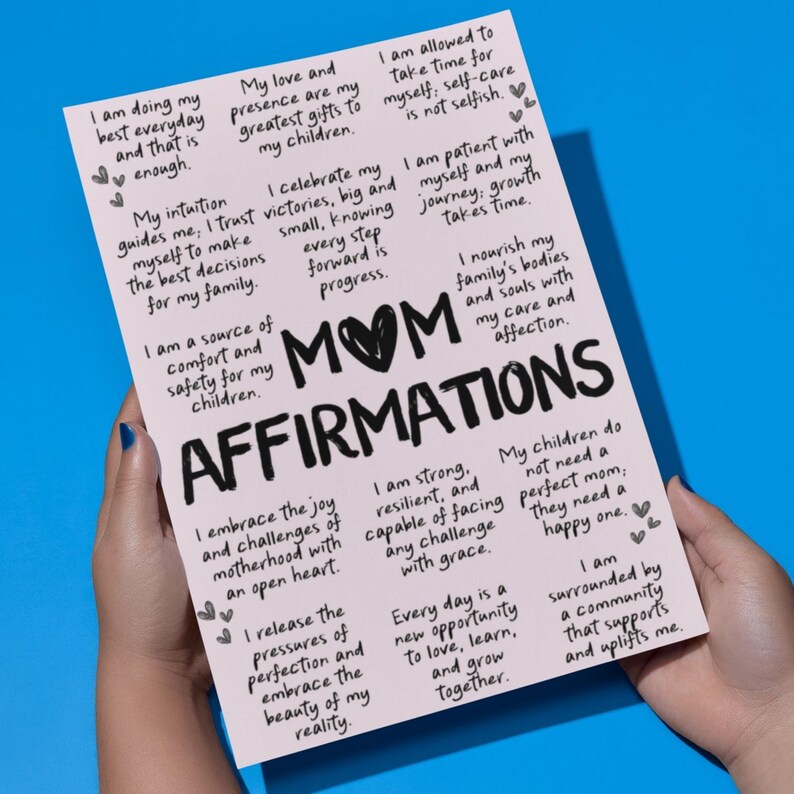 I am doing my
best everyday
and that is
enough.
My love and
presence are my
greatest gifts to
my children.
I am allowed to
take time for
myself; self-care
is not selfish.
My intuition
guides me; I trust
myself to make
the best decisions
for my family.
I celebrate my
victories, big and
small, knowing
every step
forward is
progress.
I am patient with
myself and my
journey; growth
takes time.
I am a source of
comfort and
safety for my
children.
I nourish my
family's bodies
and souls with
my care and
affection.
MOM
AFFIRMATIONS
I embrace the joy
and challenges of
motherhood with
an open heart.
I am strong,
resilient, and
capable of facing
any challenge
with grace.
My children do
not need a
perfect mom;
they need a
happy one.
I release the
pressures of
perfection and
embrace the
beauty of my
reality.
Every day is a
new opportunity
to love, learn,
and grow
together.
I am
surrounded by
a community
that supports
and uplifts me.